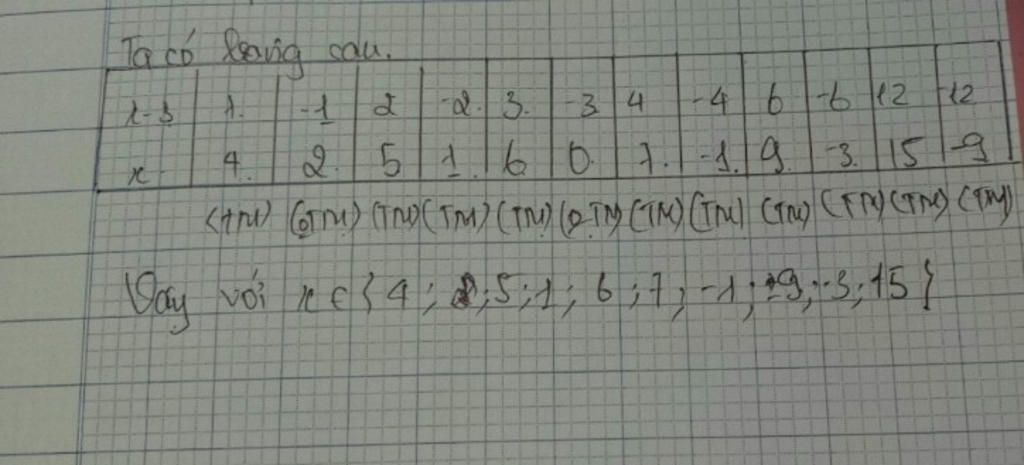 Ta có bảng sau.
x-3 1. -1 2 -2. 3. -3 4 -4 6 -6 12 -12
x 4. 2. 5 1. 6 0. 7. -1. 9. -3. 15 -9
(TM) (0TM) (TM) (TM) (TM) (0.TM) (TM) (TM) (TM) (TM) (TM) (TM)
Vậy với x ∈ {4; ;5;1; 6;7; -1; ±9; -3; 15}